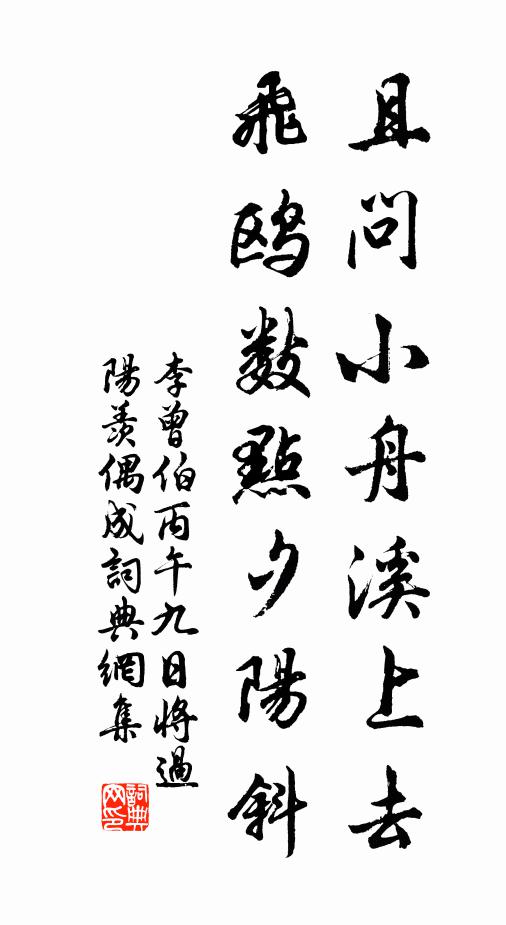 且問小舟溪上去
飛鷗數點夕陽斜
李曾伯丙午九日將過
陽羨偶成詞典網集
詞典网印